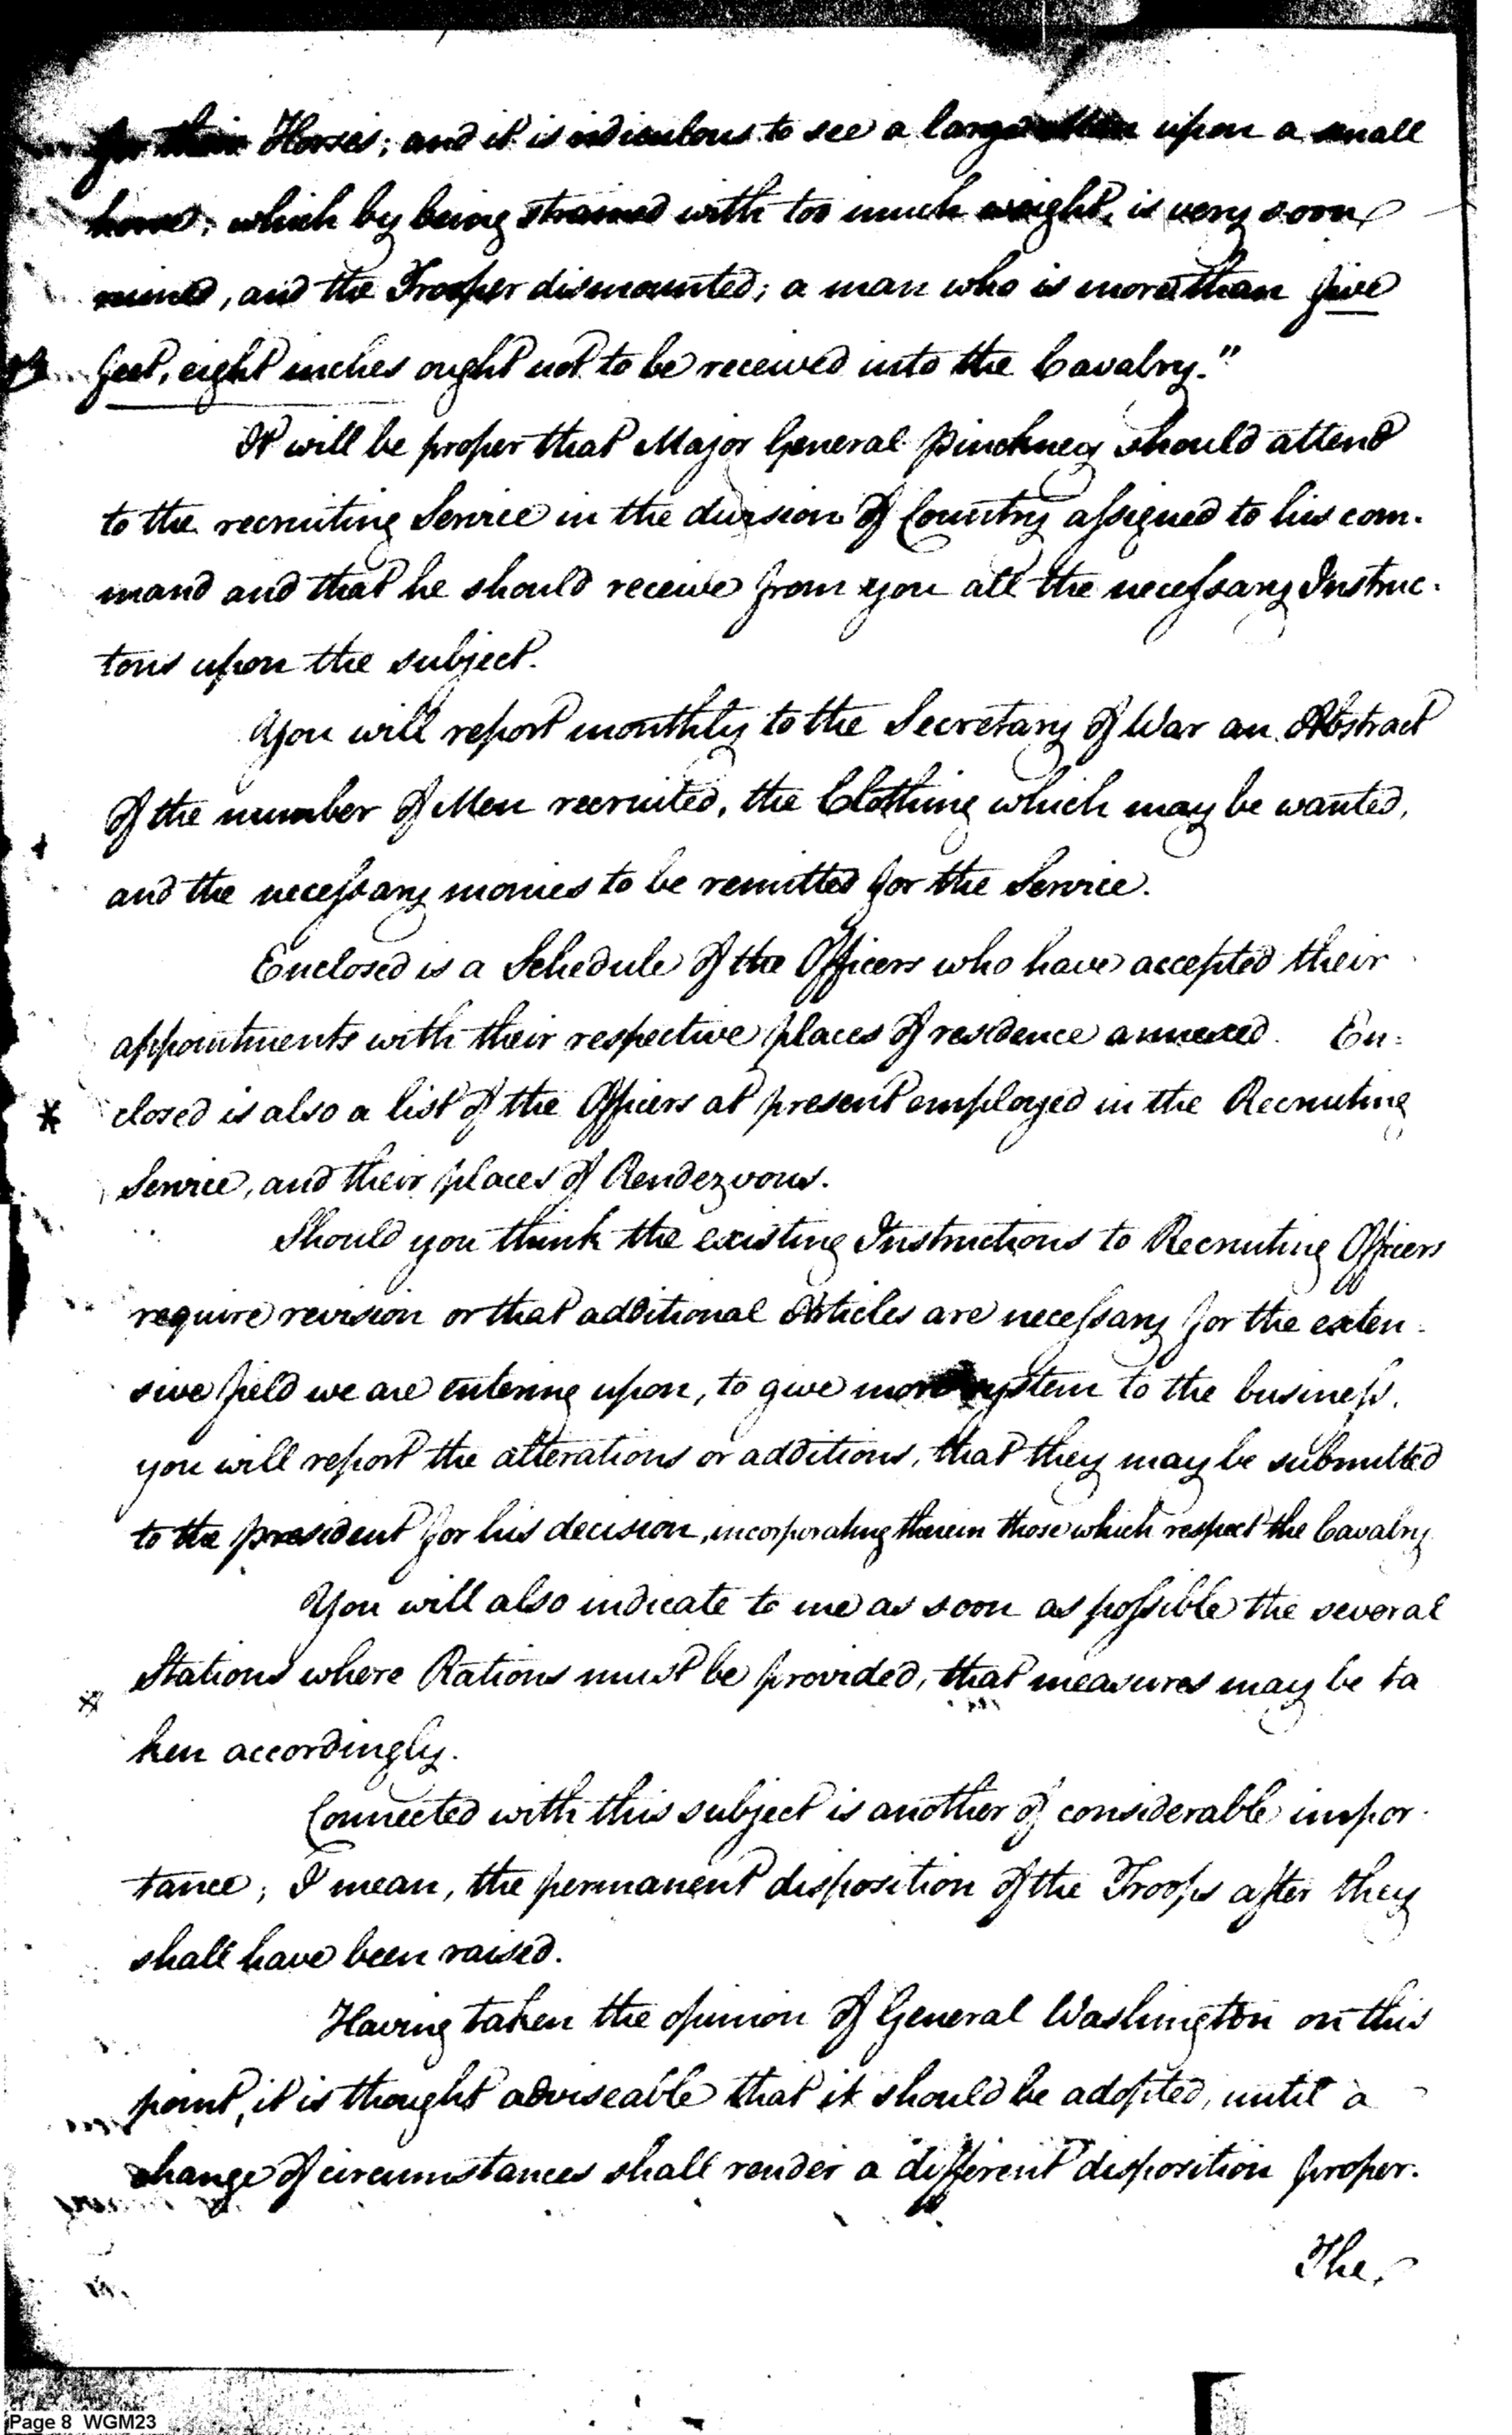 for their Horses; and it is ridiculous to see a large upon a small
horse, which by being strained with too much weight, is very soon
ruined, and the Trooper dismounted; a man who is more than five
feet, eight inches ought not to be received into the Cavalry."
It will be proper that Major General Pinckney should attend
to the recruiting Service in the division of Country assigned to his com-
mand and that he should receive from you all the necessary Instruc-
tons upon the subject.
You will report monthly to the Secretary of War an Abstract
of the number of Men recruited, the Clothing which may be wanted,
and the necessary monies to be remitted for the Service.
Enclosed is a Schedule of the Officers who have accepted their
appointments with their respective places of residence annexed. En=
* closed is also a list of the Officers at present employed in the Recruiting
Service, and their places of Rendezvous.
Should you think the existing Instructions to Recruiting Officers
require revision or that additional Articles are necessary for the exten-
sive field we are entering upon, to give more system to the business,
you will report the alterations or additions, that they may be submitted
to the president for his decision, incorporating therein those which respect the Cavalry
You will also indicate to me as soon as possible the several
* Stations where Rations must be provided, that measures may be ta
ken accordingly.
Connected with this subject is another of considerable impor-
tance; I mean, the permanent disposition of the Troops after they
shall have been raised.
Having taken the opinion of General Washington on this
point, it is thought adviseable that it should be adopted, until a
change of circumstances shall render a different disposition proper.
The
Page 8 WGM23